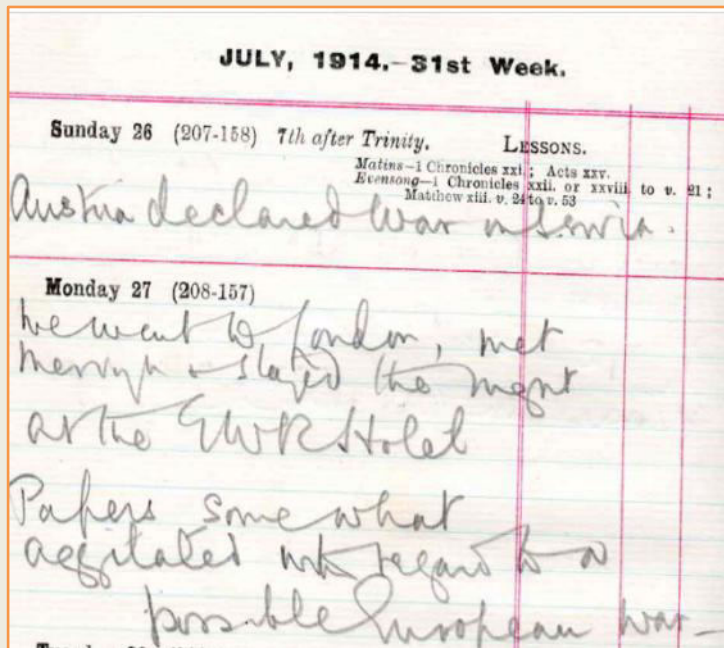 JULY, 1914.—31st Week.
Sunday 26 (207-158) 7th after Trinity. LESSONS.
Matins—1 Chronicles xxi.; Acts xxv.
Evensong—1 Chronicles xxii. or xxviii. to v. 21;
Matthew xiii. v. 24 to v. 53
Austria declared War on Servia.
Monday 27 (208-157)
We went to London, met
& stayed the night
at the GWR Hotel
Papers somewhat
aggitated with regard to a
possible European War—